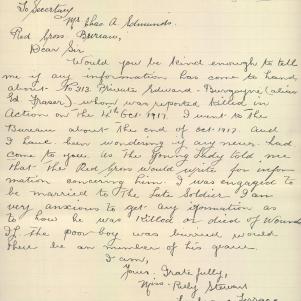 To Secertary
Mr Chas A Edmunds.
Red Cross Bureau,
Dear Sir
Would you be kind enough to tell
me if any information has come to hand
about No 313. Private Edward. Burgoyne (alias
Ed. Fraser) whom was reported killed in
Action on the 12th Oct. 1917. I went to the
Bureau about the end of Oct. 1917. And
I have been wondering if any news had
come to you. as the Young Lady told me
that the Red Cross would write for infor-
mation concerning him. I was engaged to
be married to The Late Soldier I am
very anxious to get any iformation as
to how he was killed or died of Wounds
If the poor boy was burried would
there be an number of his grave.
I am,
Yours. Gratefully,
Miss. Ruby Stewart
Terrace